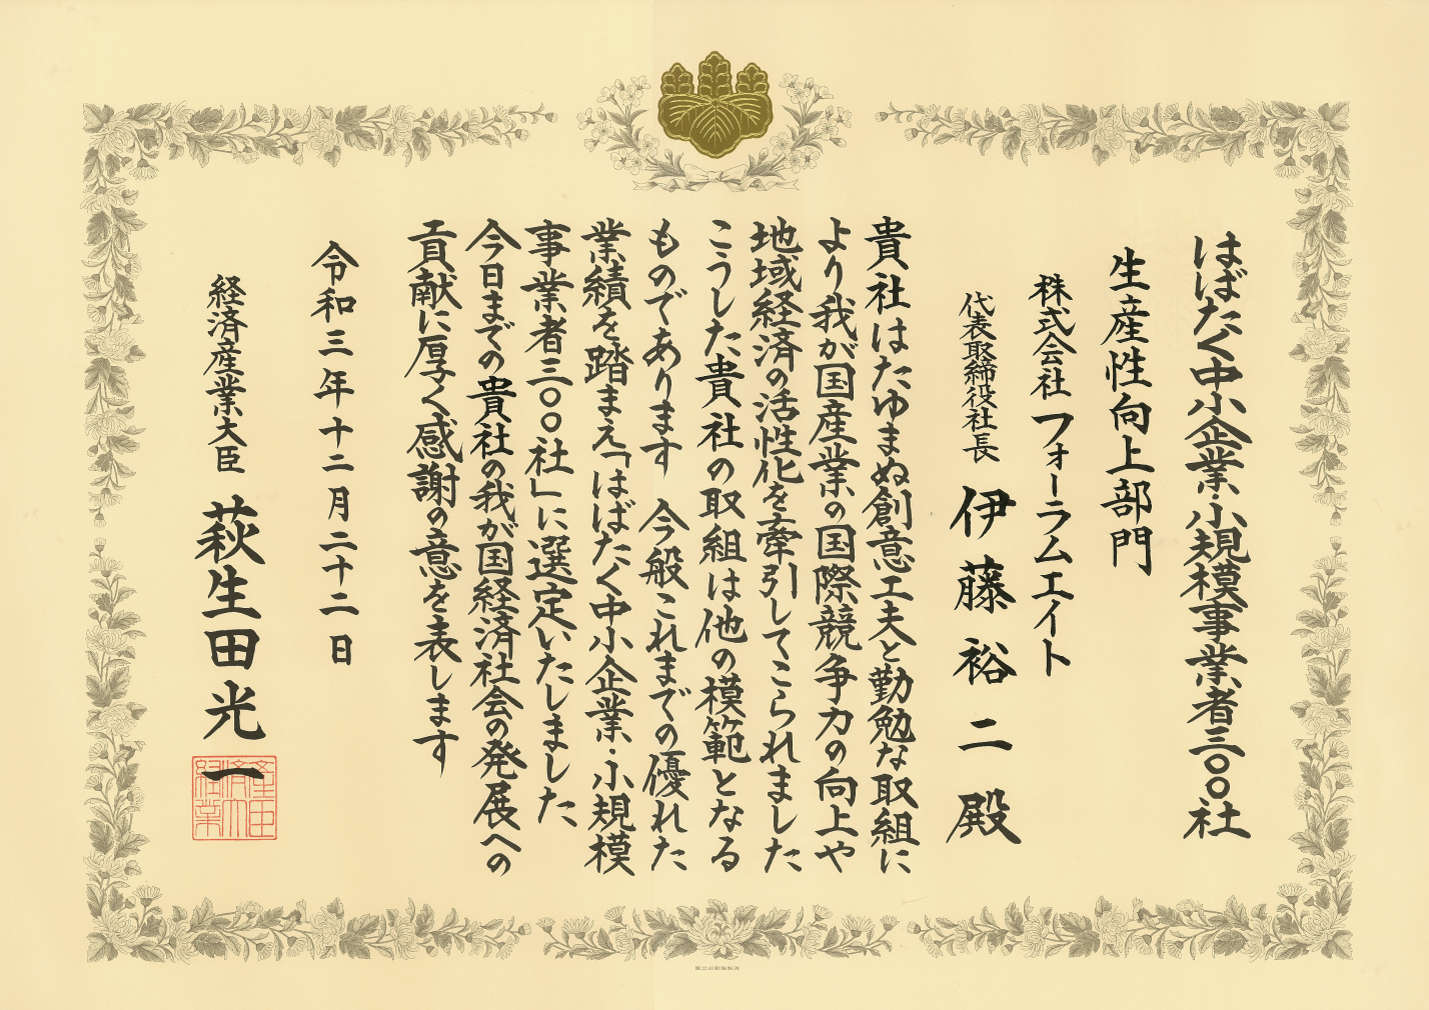 はばたく中小企業・小規模事業者三〇〇社
生産性向上部門
株式会社フォーラムエイト
代表取締役社長 伊藤裕二殿
貴社はたゆまぬ創意工夫と勤勉な取組に
より我が国産業の国際競争力の向上や
地域経済の活性化を牽引してこられました
こうした貴社の取組は他の模範となる
ものであります 今般これまでの優れた
業績を踏まえ「はばたく中小企業・小規模
事業者三〇〇社」に選定いたしました
今日までの貴社の我が国経済社会の発展への
貢献に厚く感謝の意を表します
令和三年十二月二十二日
経済産業大臣 萩生田光一